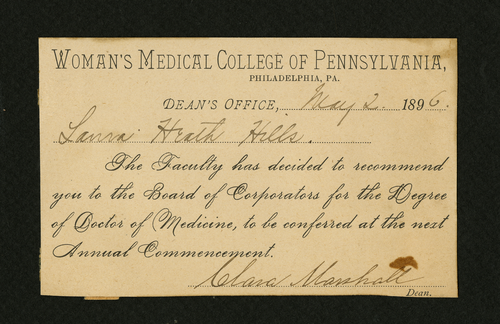 WOMAN'S MEDICAL COLLEGE OF PENNSYLVANIA,
PHILADELPHIA, PA.
DEAN'S OFFICE, May 2. 1896.
Laura Heath Hills.
The Faculty has decided to recommend
you to the Board of Corporators for the Degree
of Doctor of Medicine, to be conferred at the next
Annual Commencement.
Clara Marshall
Dean.